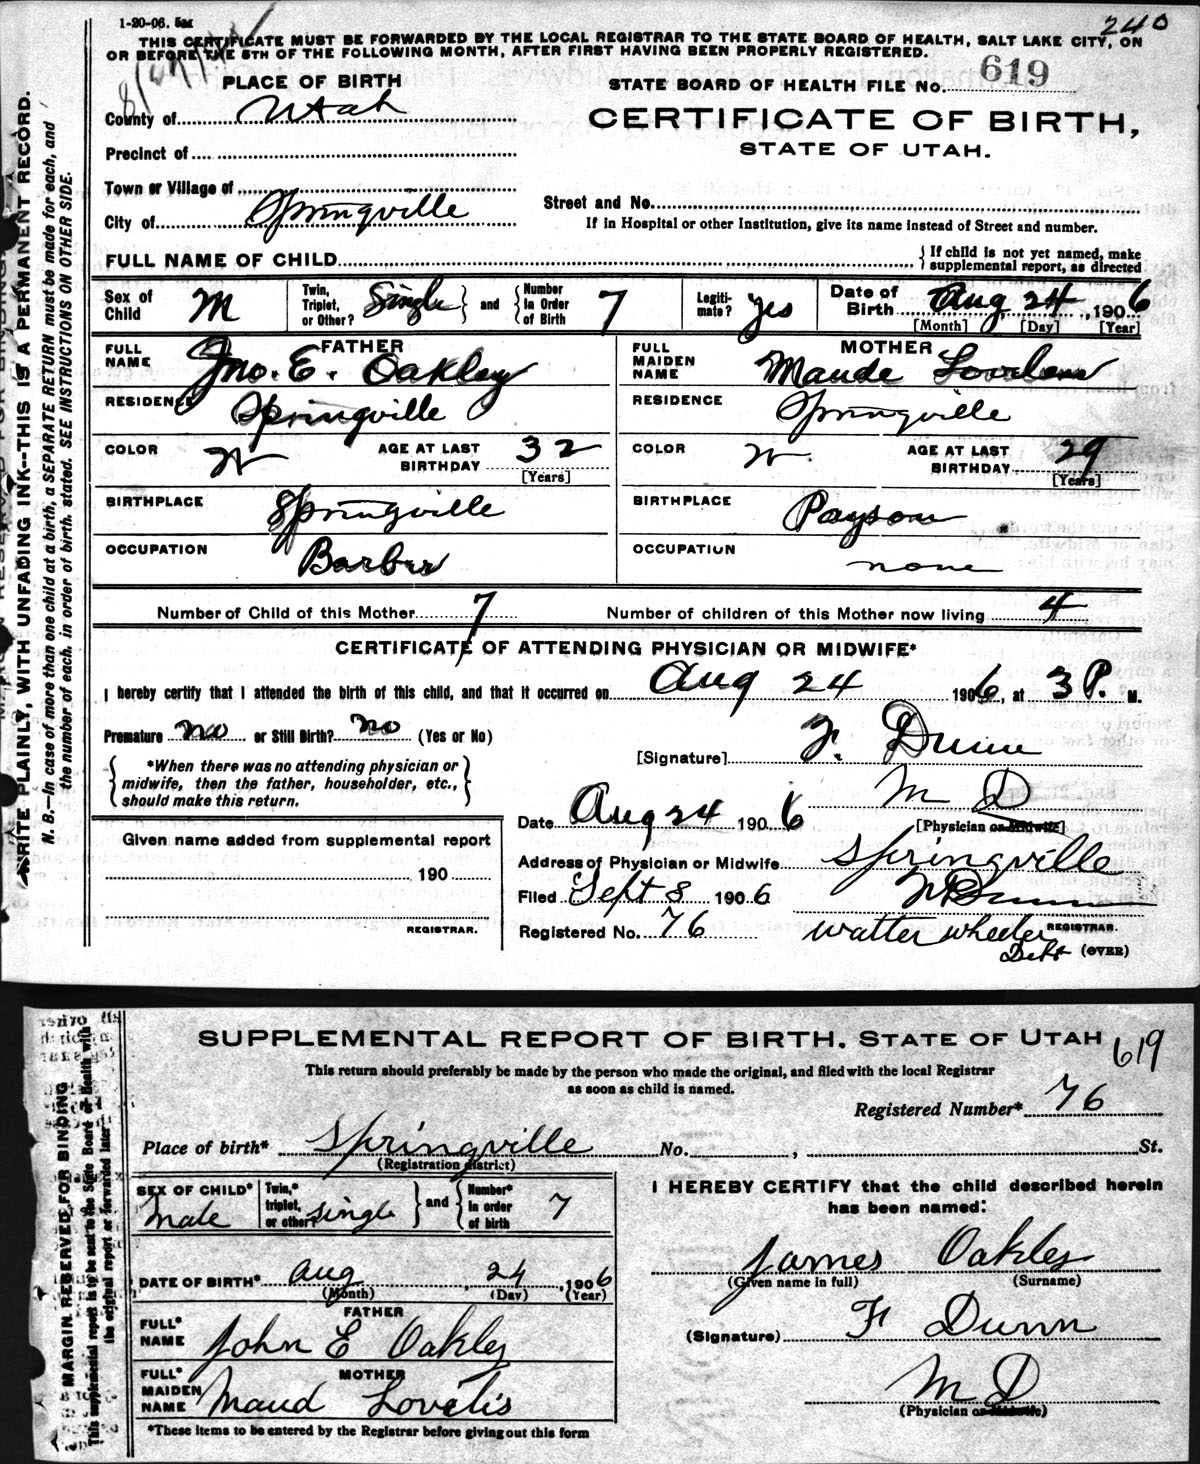 1-20-06. 5M
240
THIS CERTIFICATE MUST BE FORWARDED BY THE LOCAL REGISTRAR TO THE STATE BOARD OF HEALTH, SALT LAKE CITY, ON
OR BEFORE THE 5TH OF THE FOLLOWING MONTH, AFTER FIRST HAVING BEEN PROPERLY REGISTERED.
PLACE OF BIRTH
STATE BOARD OF HEALTH FILE No. 619
County of Utah
CERTIFICATE OF BIRTH,
STATE OF UTAH.
Precinct of
Town or Village of
City of Springville
Street and No.
If in Hospital or other Institution, give its name instead of Street and number.
FULL NAME OF CHILD
{ If child is not yet named, make supplemental report, as directed
Sex of Child M
Twin, Triplet, or Other? Single } and { Number in Order of Birth 7
Legiti-mate? yes
Date of Birth Aug 24, 1906
[Month] [Day] [Year]
FATHER
FULL NAME Jno. E. Oakley
MOTHER
FULL MAIDEN NAME Maude Loveless
RESIDENCE Springville
RESIDENCE Springville
COLOR W
AGE AT LAST BIRTHDAY 32 [Years]
COLOR W
AGE AT LAST BIRTHDAY 29 [Years]
BIRTHPLACE Springville
BIRTHPLACE Payson
OCCUPATION Barber
OCCUPATION none
Number of Child of this Mother 7
Number of children of this Mother now living 4
CERTIFICATE OF ATTENDING PHYSICIAN OR MIDWIFE*
I hereby certify that I attended the birth of this child, and that it occurred on Aug 24 1906, at 3 P. M.
Premature no or Still Birth? no (Yes or No)
[Signature] F. Dunn
M D
[Physician or Midwife]
{ *When there was no attending physician or midwife, then the father, householder, etc., should make this return. }
Date Aug 24 1906
Given name added from supplemental report
190
REGISTRAR.
Address of Physician or Midwife Springville
Filed Sept 8 1906
Registered No. 76
Walter Wheeler
REGISTRAR.
(OVER)
WRITE PLAINLY, WITH UNFADING INK--THIS IS A PERMANENT RECORD.
N. B.—In case of more than one child at a birth, a SEPARATE RETURN must be made for each, and
the number of each, in order of birth, stated. SEE INSTRUCTIONS ON OTHER SIDE.
SUPPLEMENTAL REPORT OF BIRTH, STATE OF UTAH
619
This return should preferably be made by the person who made the original, and filed with the local Registrar
as soon as child is named.
Registered Number* 76
Place of birth* Springville No. , St.
(Registration district)
SEX OF CHILD* Male
Twin,* triplet, or other? single } and { Number* in order of birth 7
I HEREBY CERTIFY that the child described herein
has been named:
James Oakley
(Given name in full) (Surname)
DATE OF BIRTH* Aug, 24, 1906
(Month) (Day) (Year)
FATHER
FULL* NAME John E Oakley
(Signature) F Dunn
M D
(Physician or Midwife)
MOTHER
FULL* MAIDEN NAME Maud Lovelis
*These items to be entered by the Registrar before giving out this form
MARGIN RESERVED FOR BINDING
This supplemental report is to be sent to the State Board of Health with
the original report or forwarded later